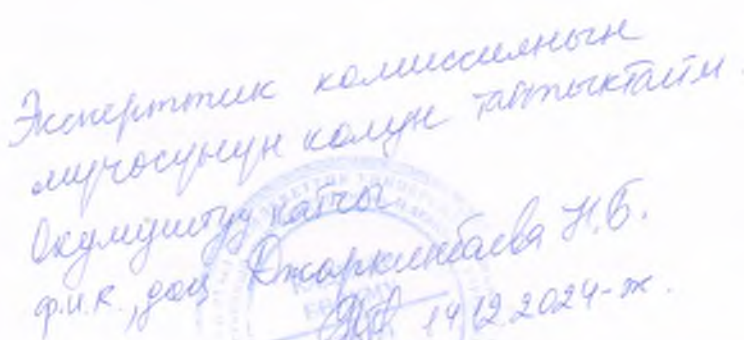 Эксперттик комиссиянын
мүчөсүнүн колун тастыктайм.
Окумуштуу катчы
ф.и.к., доц Джаркинбаева Н.Б.
14.12.2024-ж.